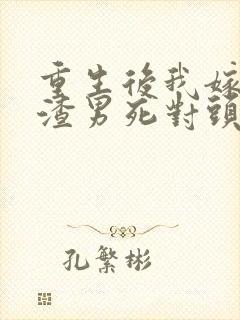 重生後我嫁
渣男死對頭
孔繁彬